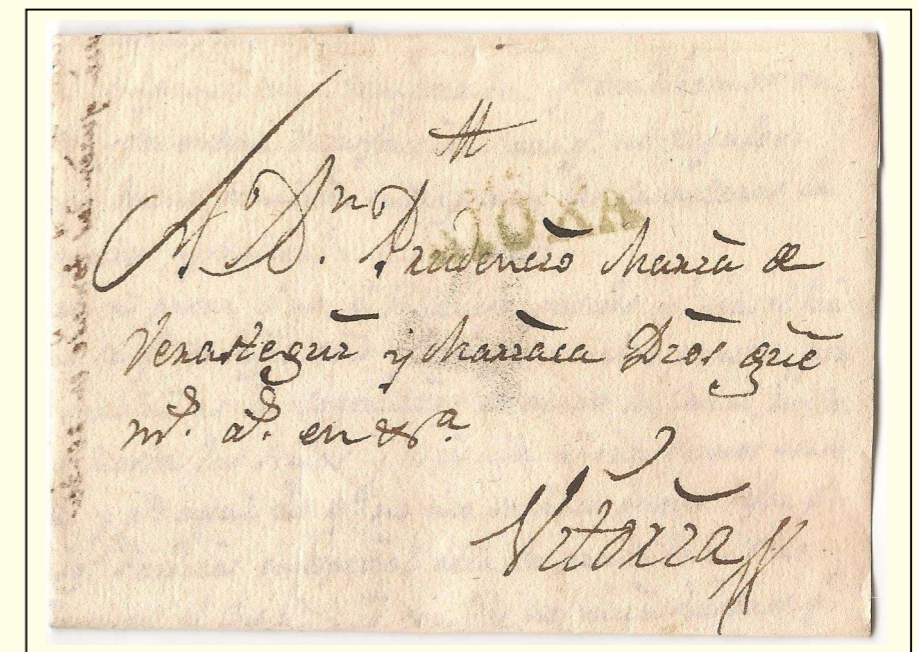 A Dn. Prudencio María de
Verástegui y Mariaca Dios gũe
ms. as. en
Vitoria